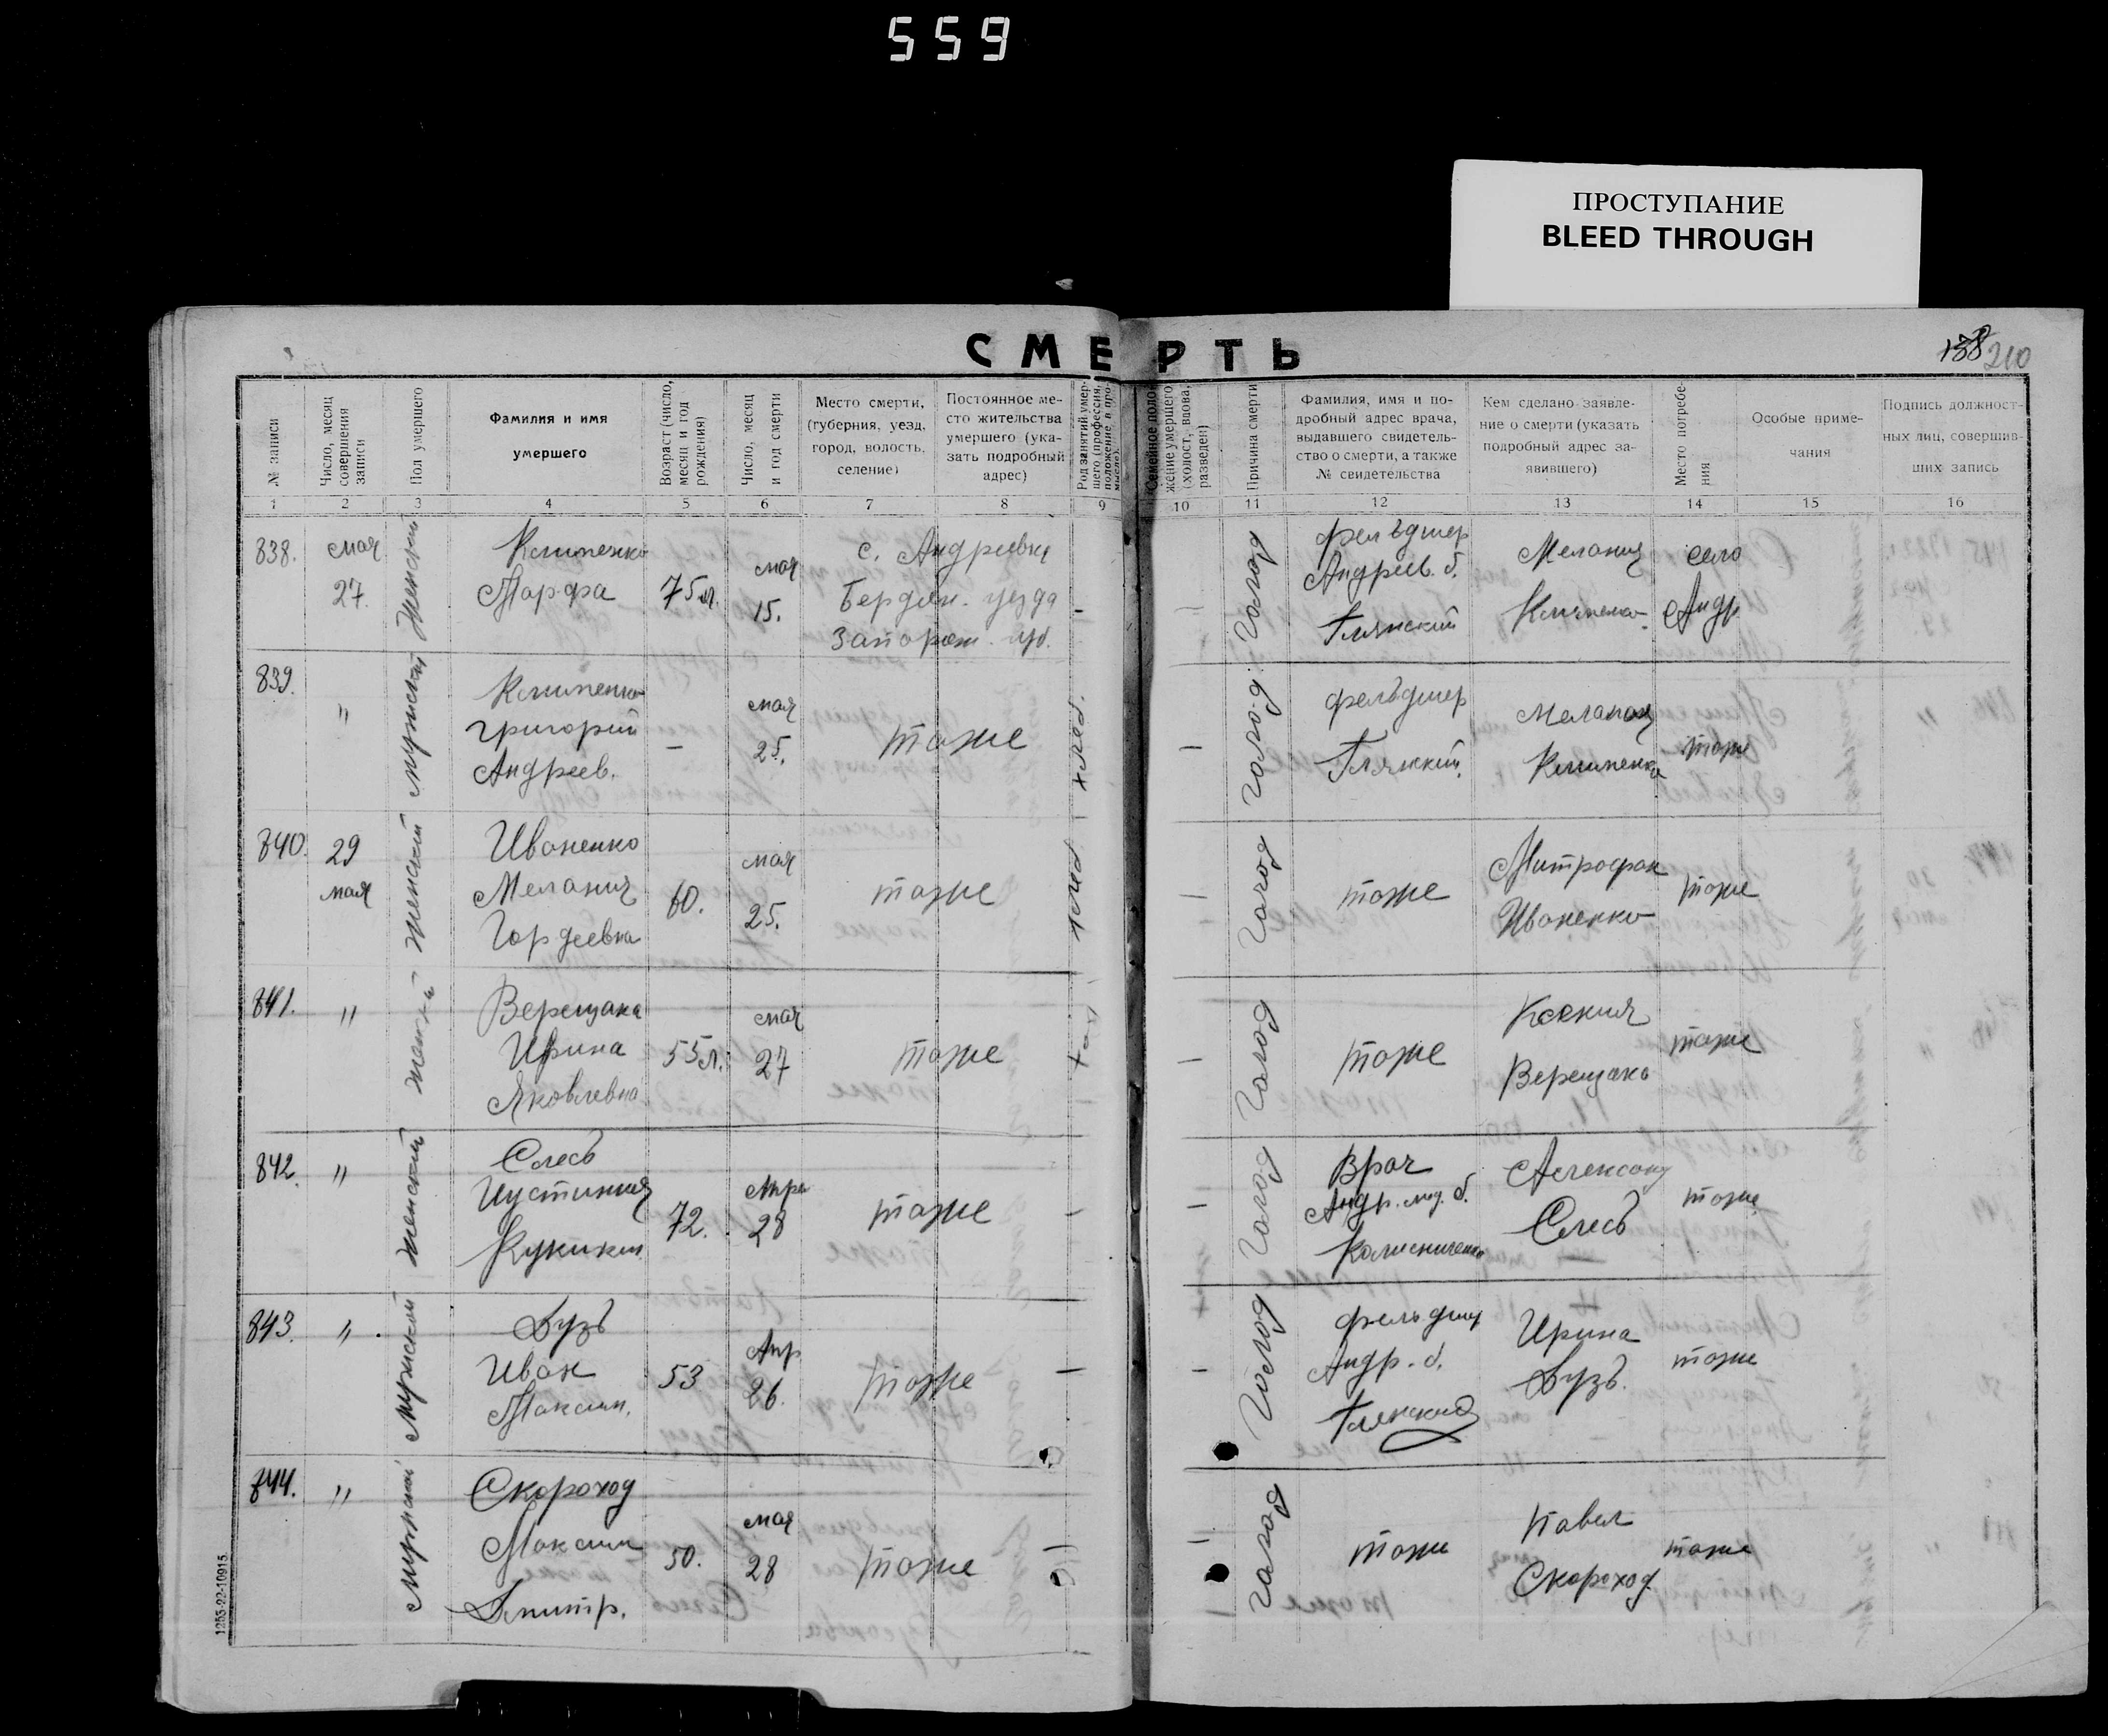 559
ПРОСТУПАНИЕ
BLEED THROUGH
СМЕРТЬ
138 210
№ записи
Число, месяц совершения записи
Пол умершего
Фамилия и имя умершего
Возраст (число, месяц и год рождения)
Число, месяц и год смерти
Место смерти, (губерния, уезд, город, волость, селение)
Постоянное место жительства умершего (указать подробный адрес)
Род занятий умершего (профессия, положение в промысле).
Семейное положение умершего (холост, вдова, разведен)
Причина смерти
Фамилия, имя и подробный адрес врача, выдавшего свидетельство о смерти, а также № свидетельства
Кем сделано заявление о смерти (указать подробный адрес заявившего)
Место погребения
Особые примечания
Подпись должностных лиц, совершивших запись
1 2 3 4 5 6 7 8 9 10 11 12 13 14 15 16
838.
мая
27.
Женский
Клименко
Марфа
75 л.
мая
15.
с. Андреевка
Бердян. уезда
Запорож. губ.
-
-
Голод
фельдшер
Андреев. б.
Глянский
Мелания
Клименко
село
Андр.
839.
"
Мужский
Клименко
Григорий
Андреев.
-
мая
25.
тоже
хлеб.
-
Голод
фельдшер
Глянский
Мелания
Клименко
тоже
840.
29
мая
Женский
Иваненко
Мелания
Гордеевна
60.
мая
25.
тоже
-
Голод
тоже
Митрофан
Иваненко
тоже
841.
"
Женский
Верещака
Ирина
Яковлевна
55 л.
мая
27
тоже
-
Голод
тоже
Ксения
Верещака
тоже
842.
"
Женский
Слесь
Иустиния
72.
Апре
28
тоже
-
-
Голод
Врач
Андр. мед. б.
Колисниченко
Александр
Слесь
тоже
843.
"
Мужской
Дузь
Иван
Максим.
53
Апр
26.
тоже
-
-
Голод
фельдшер
Андр. б.
Глянский
Ирина
Дузь.
тоже
844.
"
Мужской
Скороход
Максим
Дмитр.
50.
мая
28
тоже
-
-
Голод
тоже
Павел
Скороход
тоже
1255-22-10915